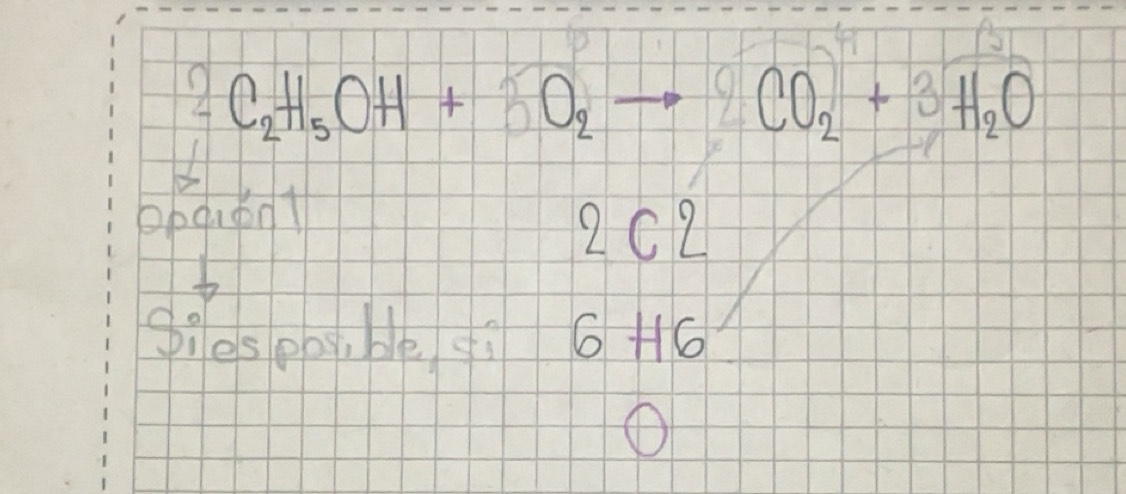 2 C₂H₅OH + 3 O₂ → 2 CO₂ + 3 H₂O
4
3
opción 1
2 C 2
Si es posible, si
6 H 6
O